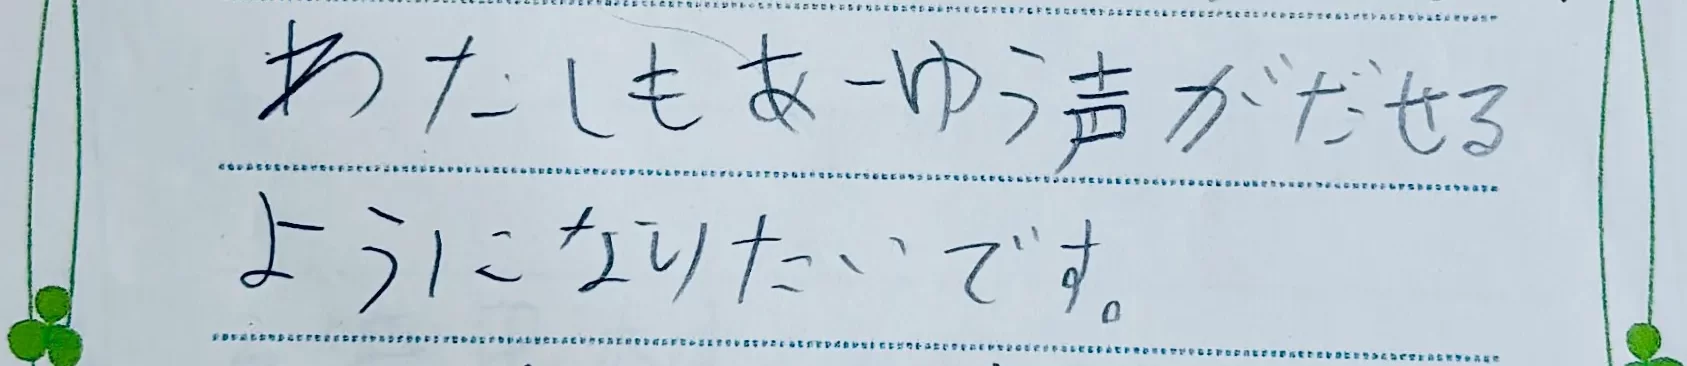 わたしもあーゆう声がだせる
ようになりたいです。